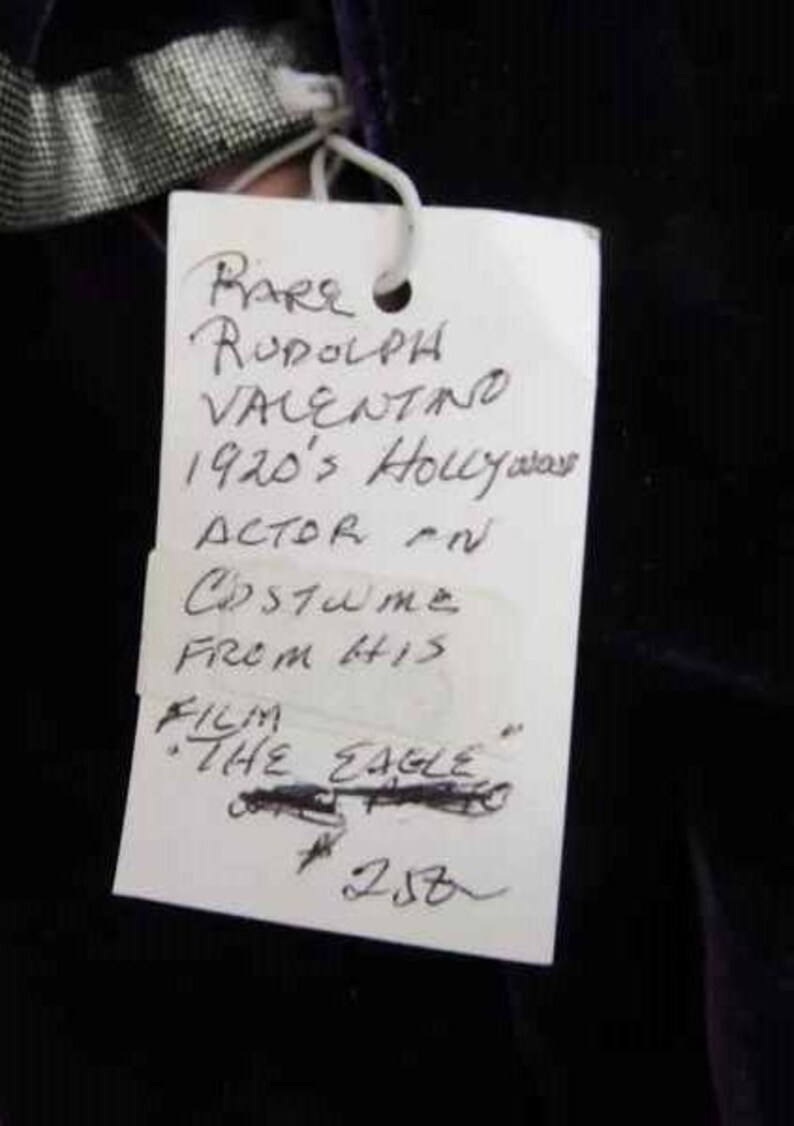 RARE
RUDOLPH
VALENTINO
1920's HOLLYWOOD
ACTOR IN
COSTUME
FROM HIS
FILM
"THE EAGLE"
$ 250